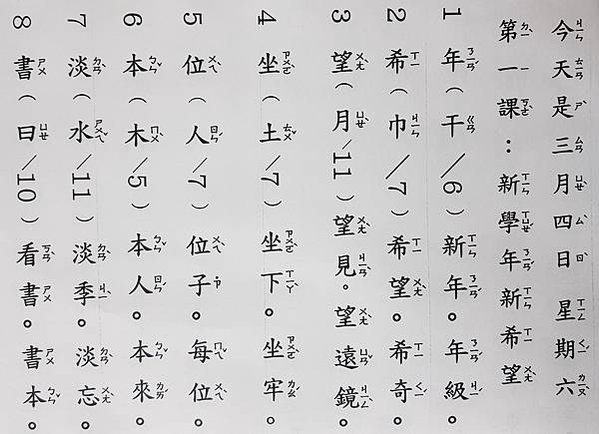 今天是三月四日 星期六
第一課：新學年新希望
1 年（干／6）新年。年級。
2 希（巾／7）希望。希奇。
3 望（月／11）望見。望遠鏡。
4 坐（土／7）坐下。坐牢。
5 位（人／7）位子。每位。
6 本（木／5）本人。本來。
7 淡（水／11）淡季。淡忘。
8 書（曰／10）看書。書本。